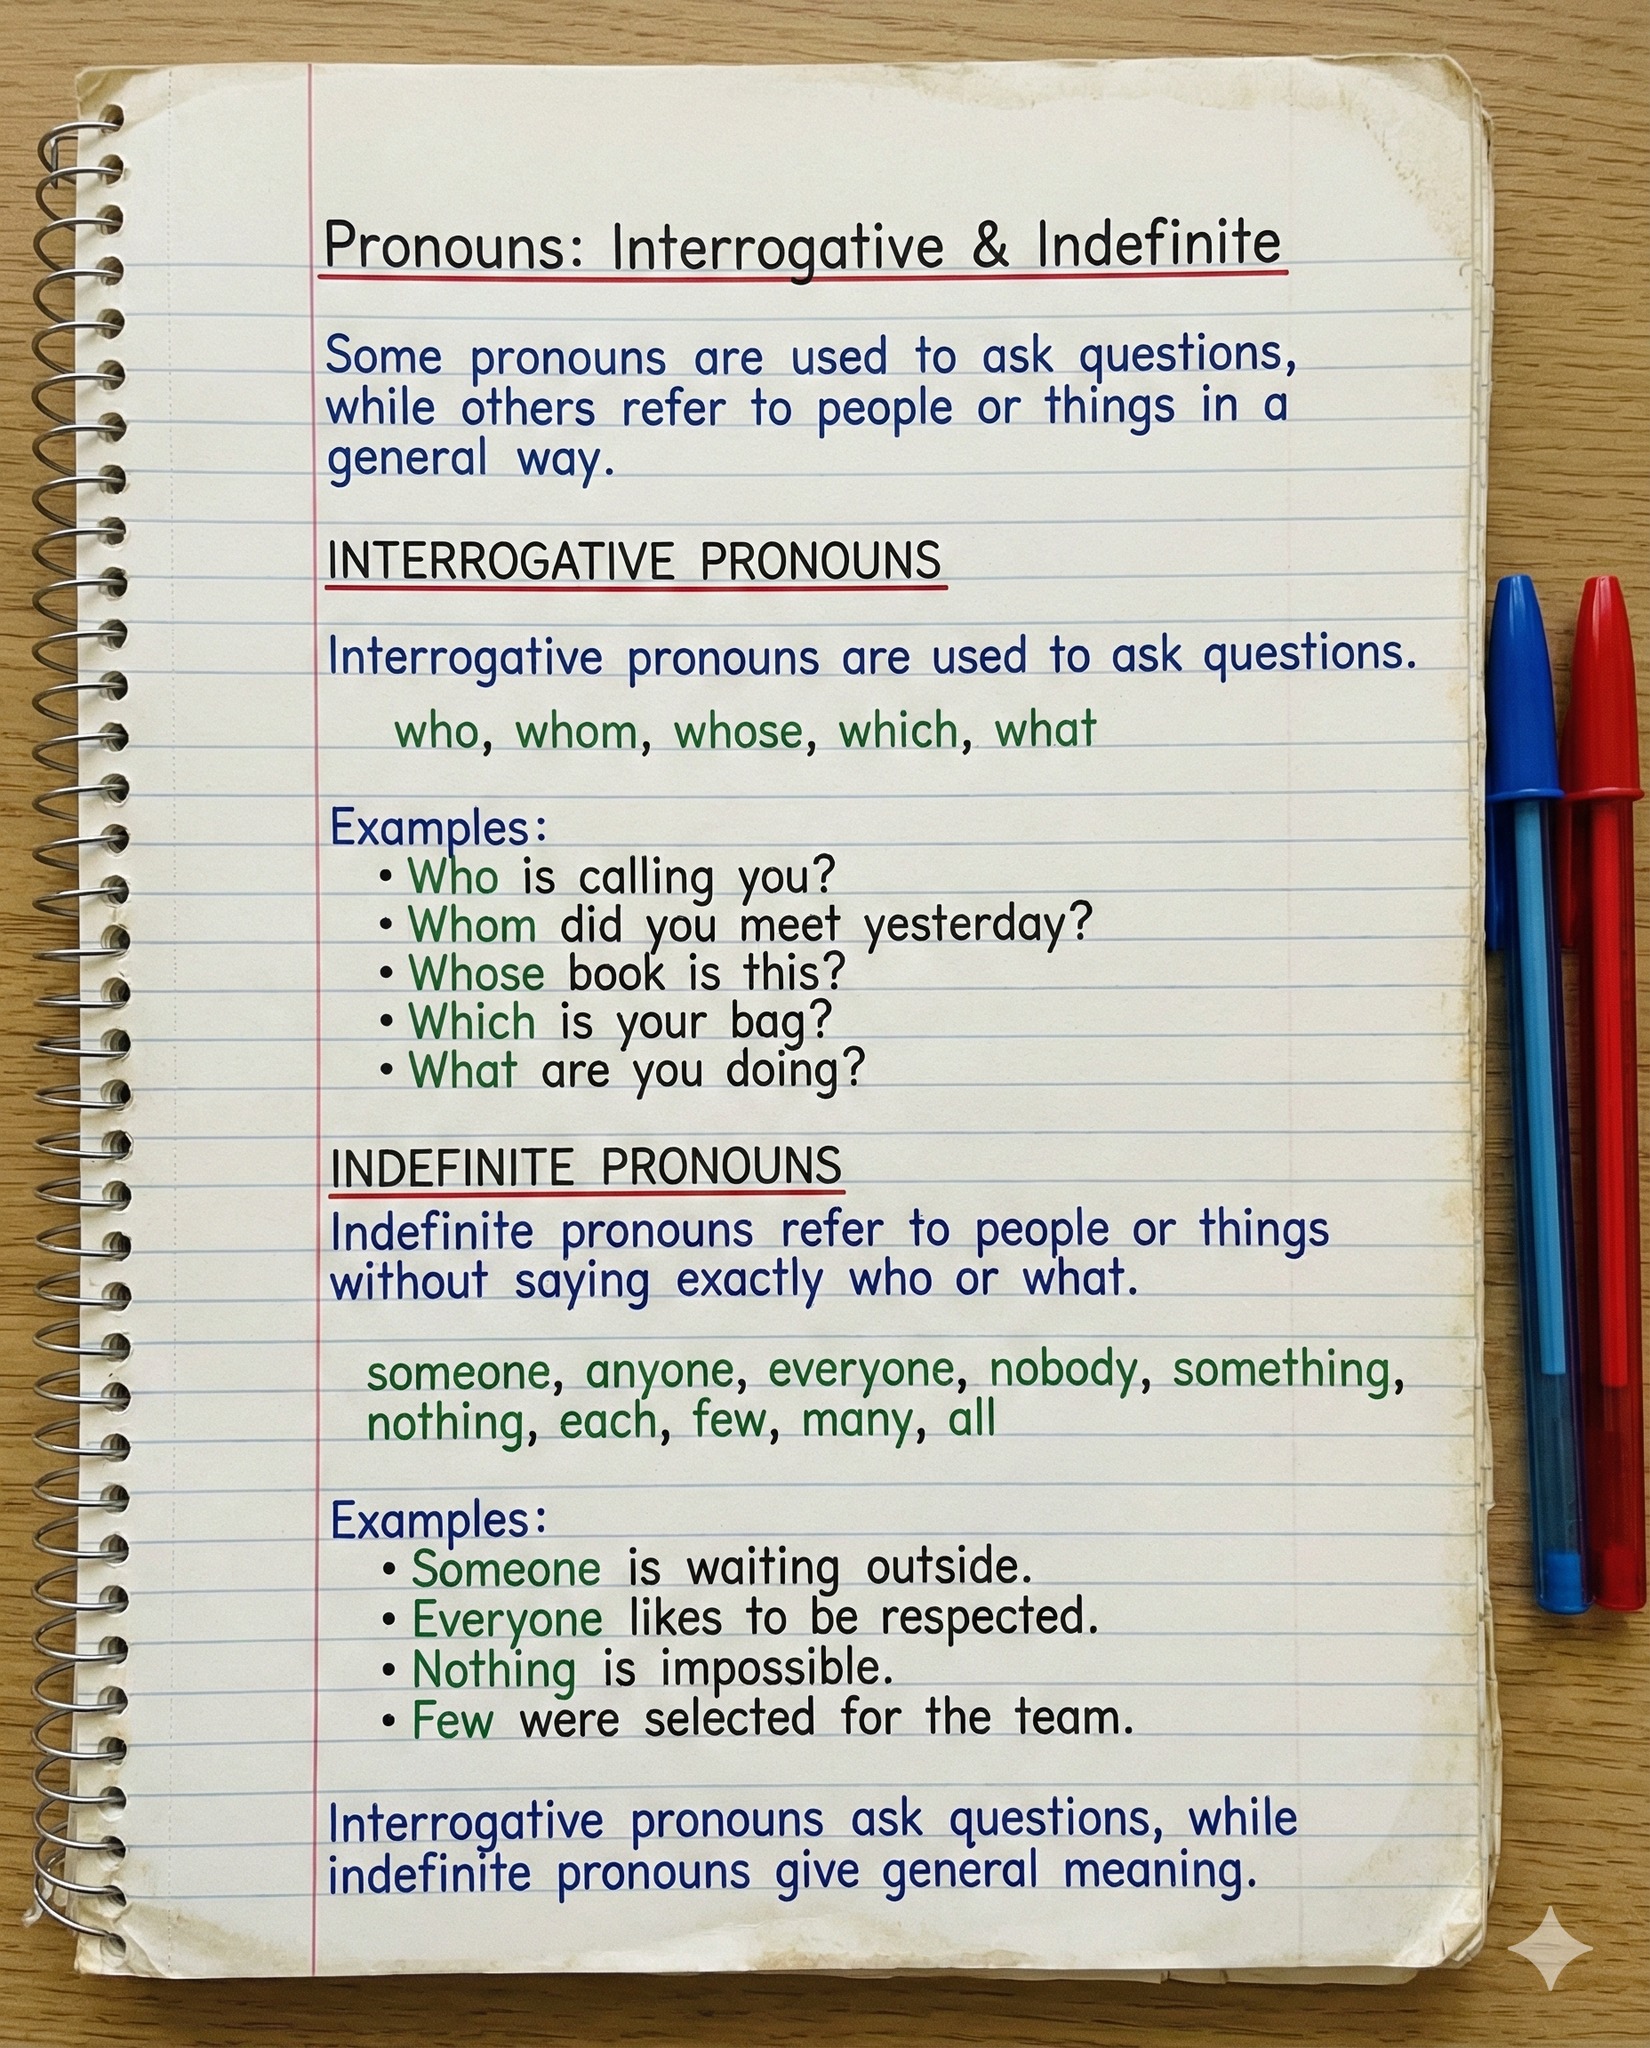 Pronouns: Interrogative & Indefinite
Some pronouns are used to ask questions,
while others refer to people or things in a
general way.
INTERROGATIVE PRONOUNS
Interrogative pronouns are used to ask questions.
who, whom, whose, which, what
Examples:
• Who is calling you?
• Whom did you meet yesterday?
• Whose book is this?
• Which is your bag?
• What are you doing?
INDEFINITE PRONOUNS
Indefinite pronouns refer to people or things
without saying exactly who or what.
someone, anyone, everyone, nobody, something,
nothing, each, few, many, all
Examples:
• Someone is waiting outside.
• Everyone likes to be respected.
• Nothing is impossible.
• Few were selected for the team.
Interrogative pronouns ask questions, while
indefinite pronouns give general meaning.